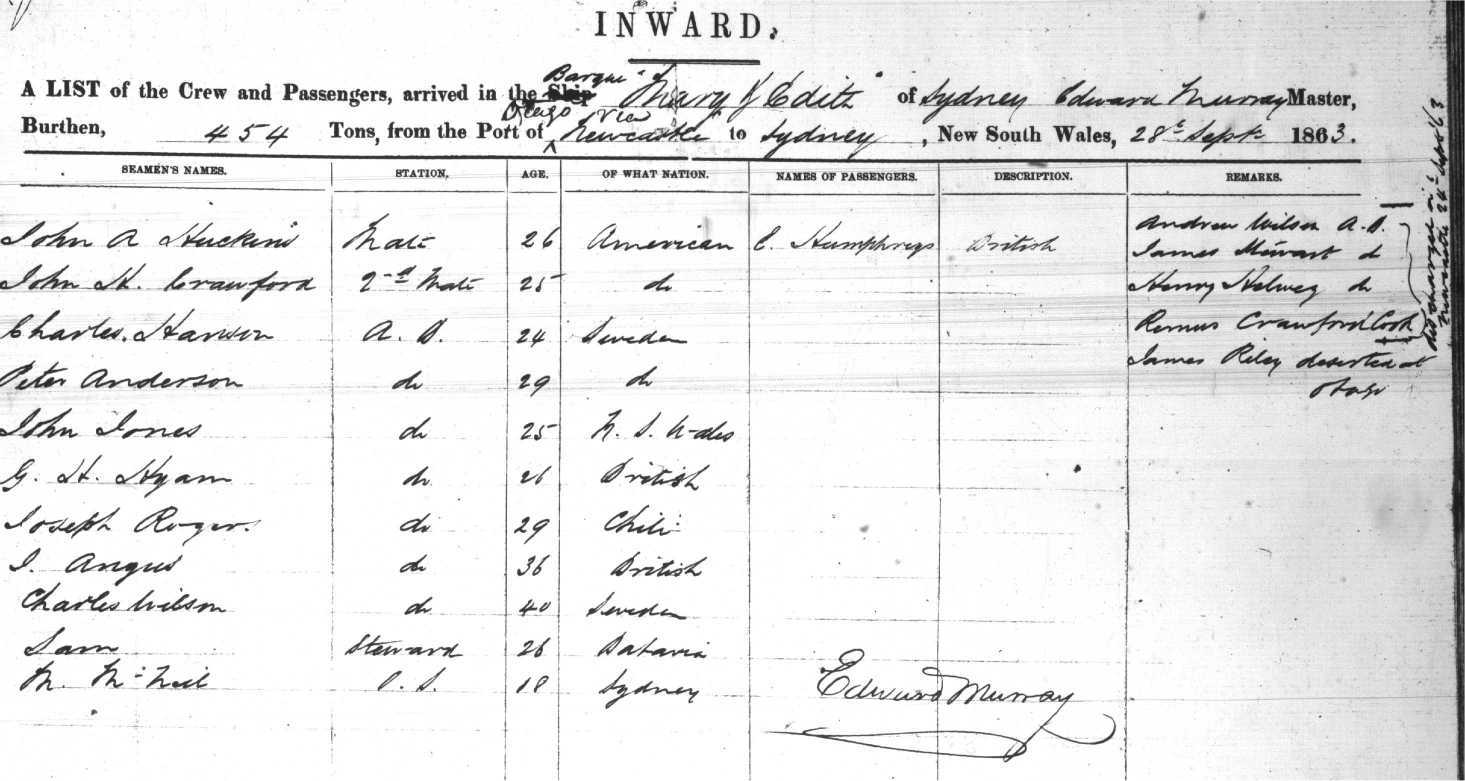 INWARD.
Barque
A LIST of the Crew and Passengers, arrived in the Ship "Mary & Edith" of Sydney Edward Murray Master,
Otago via
Burthen, 454 Tons, from the Port of Newcastle to Sydney, New South Wales, 28t Sept 1863.
SEAMEN'S NAMES. STATION, AGE. OF WHAT NATION. NAMES OF PASSENGERS. DESCRIPTION. REMARKS.
Andrew Wilson A.B.
John A Huckins Mate 26 American E. Humphreys British
James Stewart do
John H. Crawford 2nd Mate 25 do Henry Helweg do
Charles. Hanson A. B. 24 Sweden Remus Crawford Cook
James Riley deserted at
Peter Anderson do 29 do Otago
John Jones do 25 N. S. Wales
G. H. Hyam do 26 British
Joseph Roger. do 29 Chili
J. Angus do 36 British
Charles Wilson do 40 Sweden
Sam Steward 26 Batavia
M. McNeil O. S. 18 Sydney
Edward Murray
discharged in
Newcastle 24 Sept 63